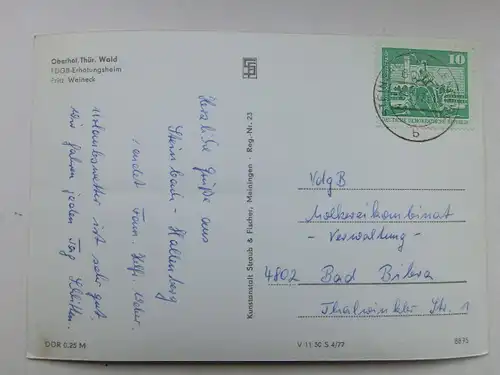 Oberhof, Thür. Wald
FDGB-Erholungsheim
Fritz Weineck
Herzliche Grüße aus
Steinbach-Hallenberg
sendet Fam.
Urlaubswetter ist sehr gut.
wir fahren jeden Tag Schlitten.
DDR 0,25 M
Kunstanstalt Straub & Fischer, Meiningen · Reg.-Nr. 23
V 11 50 S 4/77
8895
10
DEUTSCHE DEMOKRATISCHE REPUBLIK
b
VdgB
Molkereikombinat
- Verwaltung -
4802 Bad Bibra
Thalwinkler Str. 1